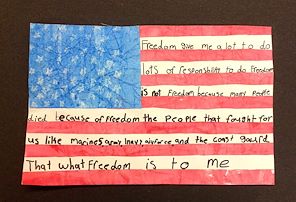 Freedom give me a lot to do
lots of responsibility to do Freedom
is not Freedom because many people
died because of Freedom the people that fought for
us like marines, army, navy, airforce, and the coast guard,
That what Freedom is to me